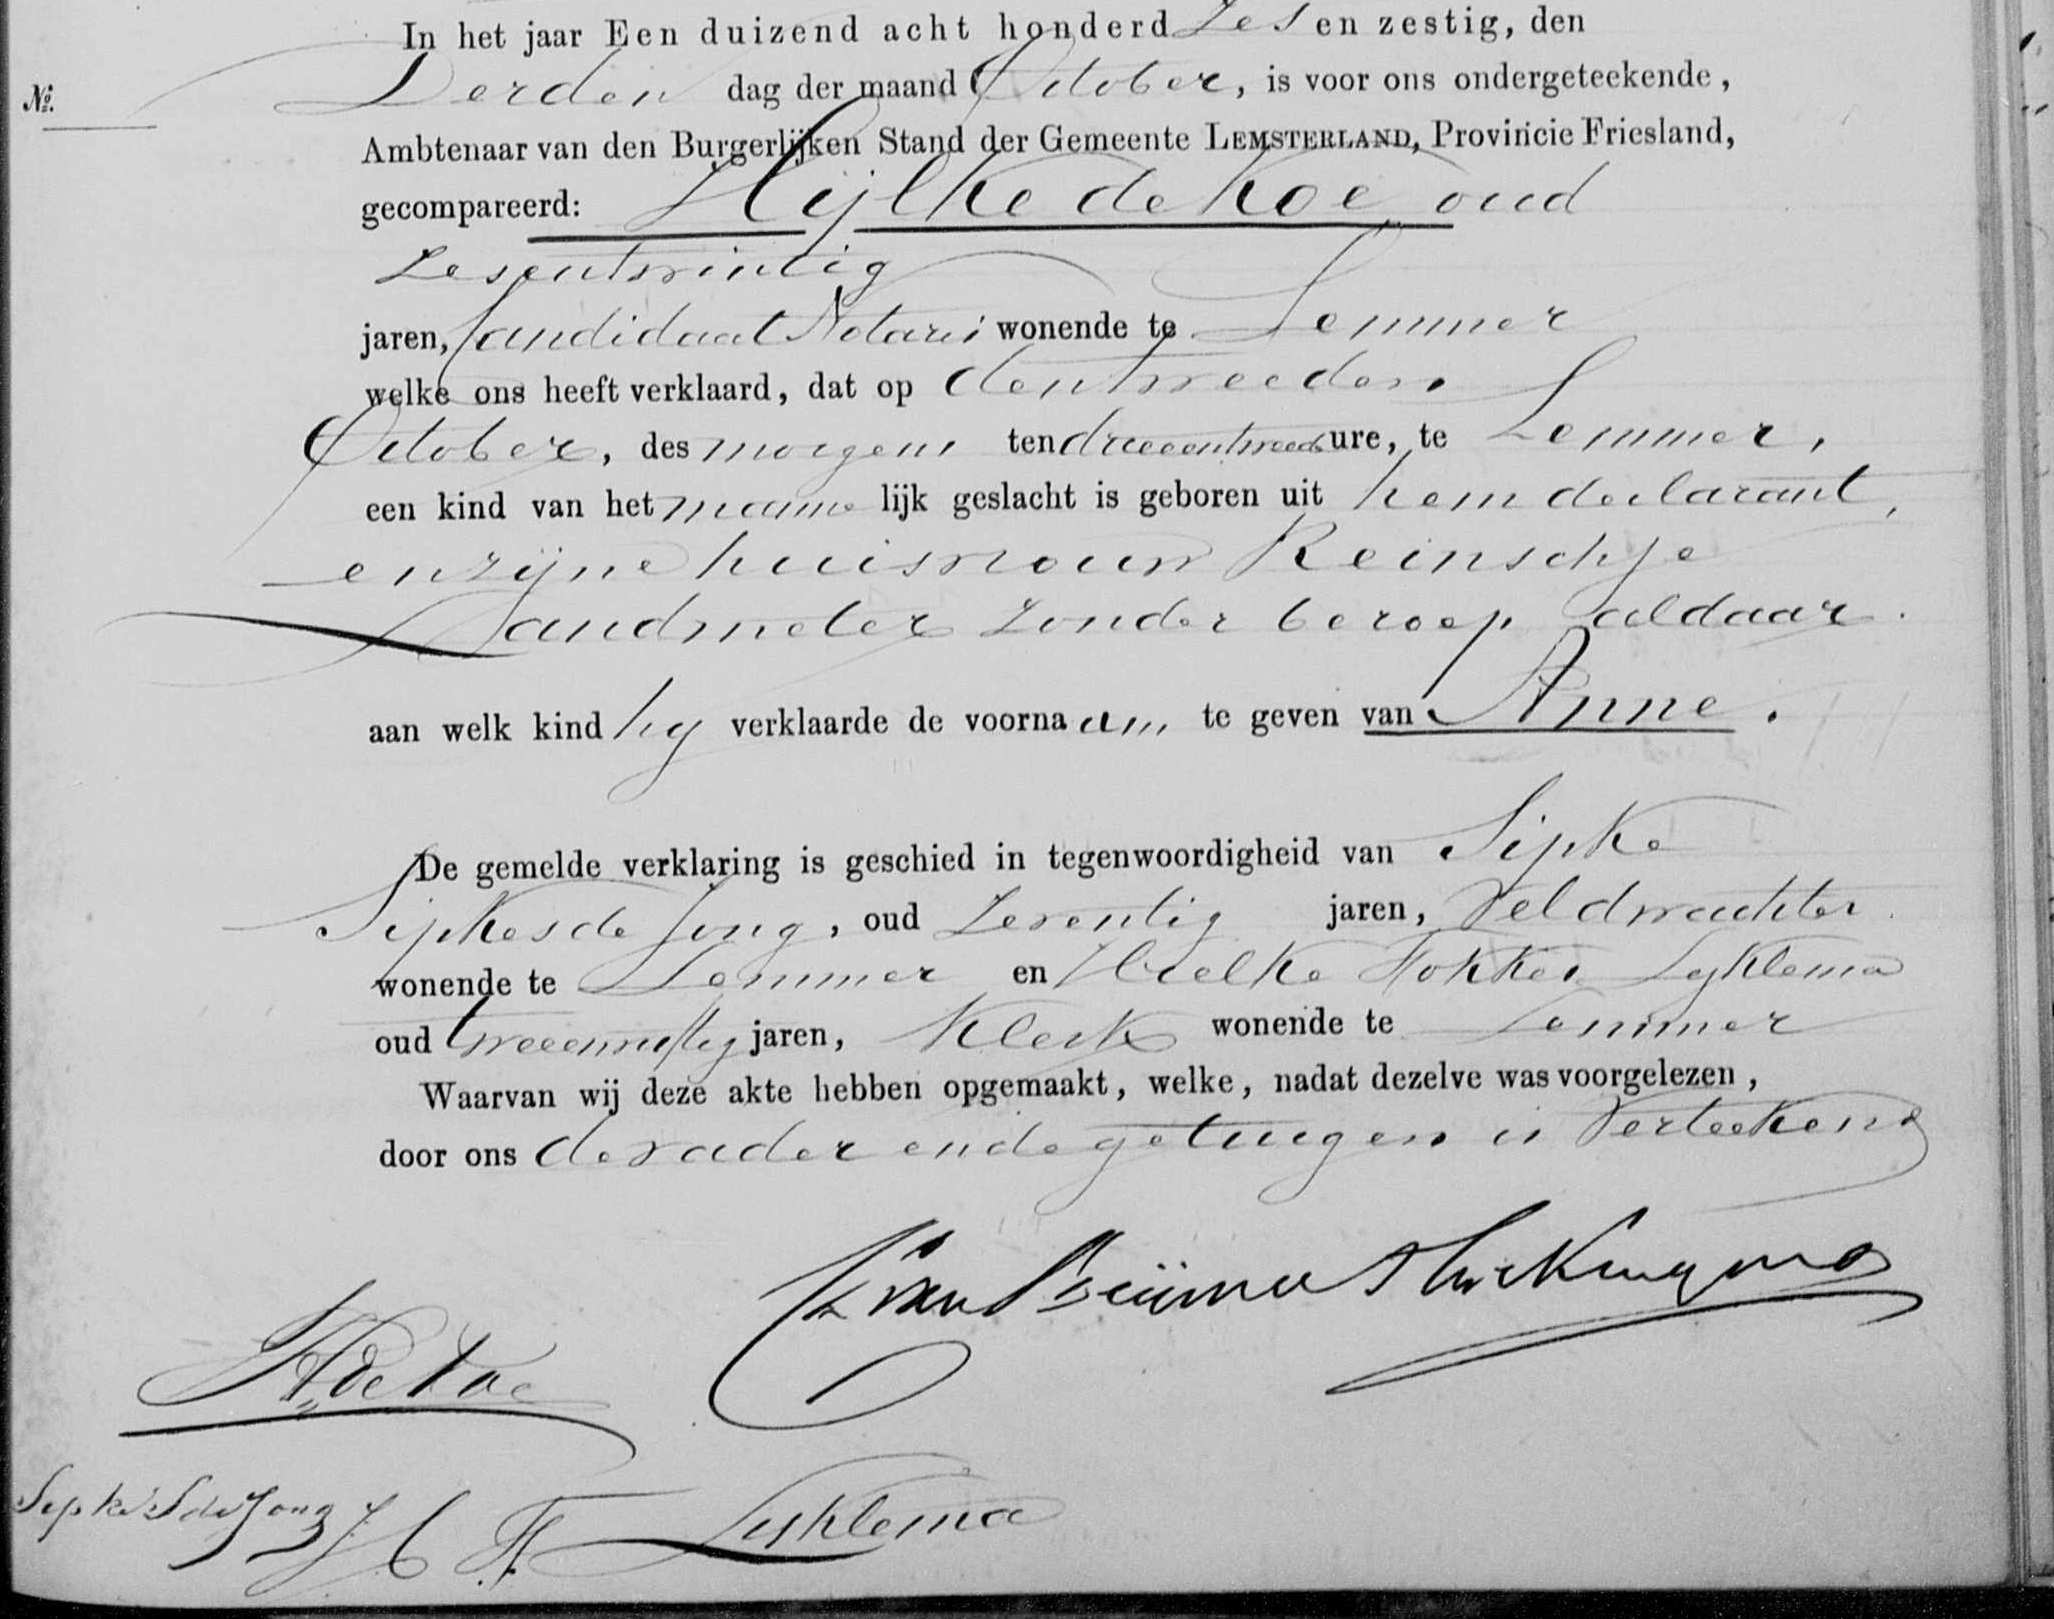 In het jaar Een duizend acht honderd Zes en zestig, den
Nº.
Derden dag der maand October, is voor ons ondergeteekende,
Ambtenaar van den Burgerlijken Stand der Gemeente LEMSTERLAND, Provincie Friesland,
gecompareerd: Hijlke de Koe oud
Zesentwintig
jaren, Candidaat Notaris wonende te Lemmer
welke ons heeft verklaard, dat op den tweeden
October, des morgens ten ure, te Lemmer,
een kind van het manne lijk geslacht is geboren uit hem declarant,
en zijne huisvrouw Reinschje
Landmeter zonder beroep aldaar.
aan welk kind hy verklaarde de voornaam te geven van Anne.
De gemelde verklaring is geschied in tegenwoordigheid van Sipke
Sipkes de Jong, oud Zeventig jaren, Veldwachter
wonende te Lemmer en Hielke Fokkes Lyklema
oud jaren, Klerk wonende te Lemmer
Waarvan wij deze akte hebben opgemaakt, welke, nadat dezelve was voorgelezen,
door ons de vader en de getuigen is Verteekend
H de Koe
Sipke S de Jong H F Lyklema